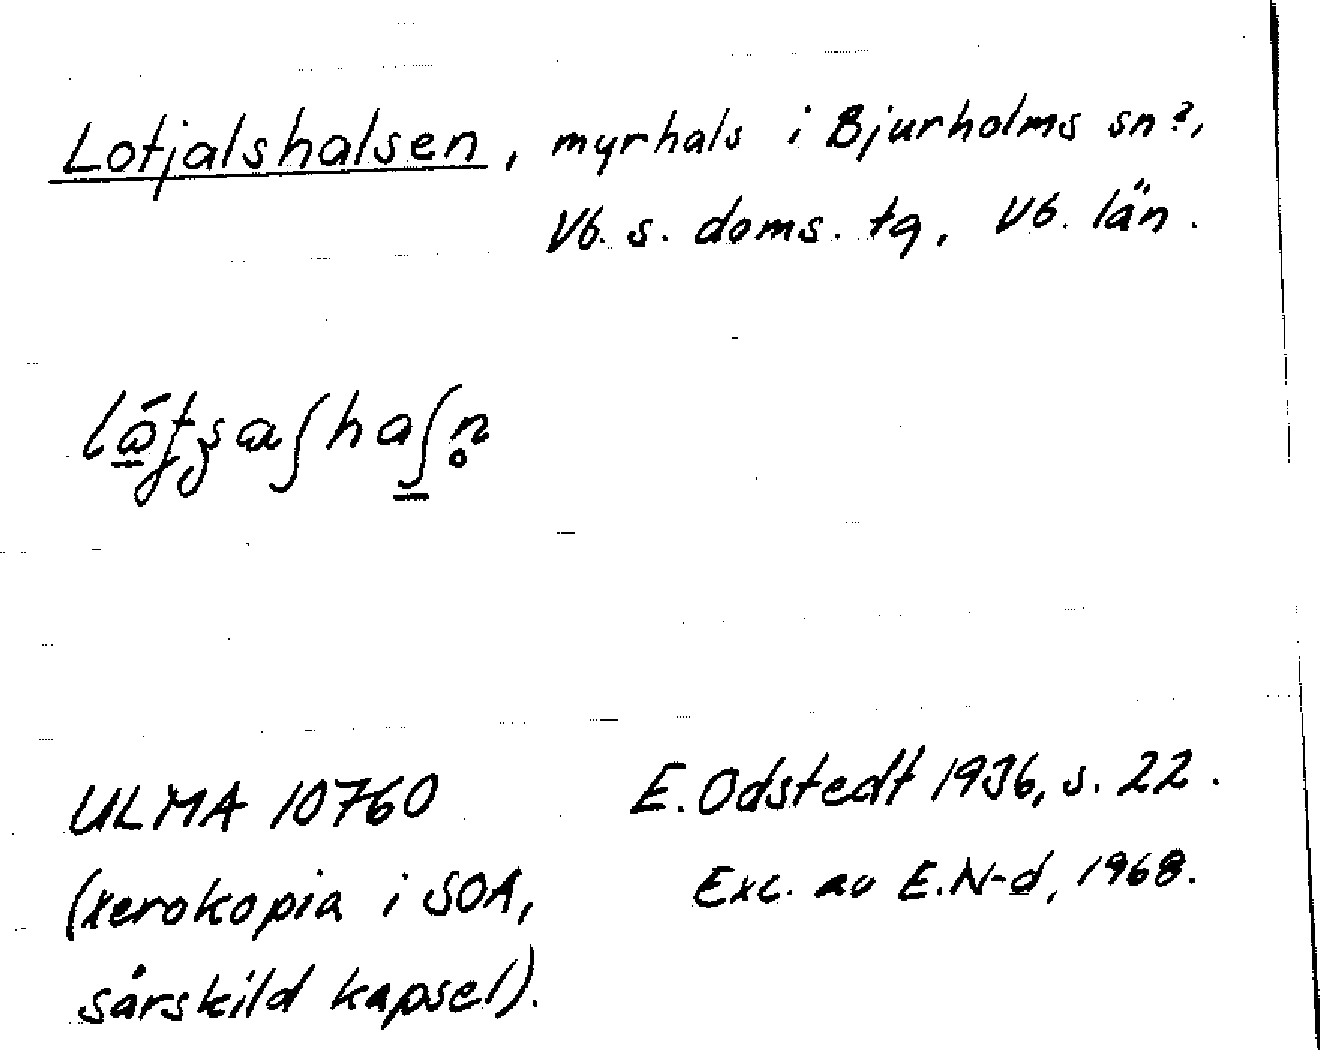 Lotjalshalsen, myrhals i Bjurholms sn?,
Vb. s. doms. tg, Vb. län.
ULMA 10760
(xerokopia i SOA,
särskild kapsel).
E. Odstedt 1936, s. 22.
Exc. av E.N-d, 1968.